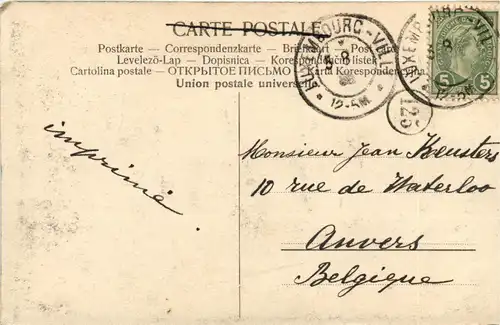 CARTE POSTALE
Postkarte — Correspondenzkarte — Briefkaart — Postcard
Levelező-Lap — Dopisnica — Korespondenční lístek
Cartolina postale — ОТКРЫТОЕ ПИСЬМО — Karta Korespondencyjna
Union postale universelle
LUXEMBOURG-VILLE
8
12-5M
LUXEMBOURG-VILLE
8
12-5M
5 5
126
imprimé
Monsieur Jean Keusters
10 rue de Waterloo
Anvers
Belgique